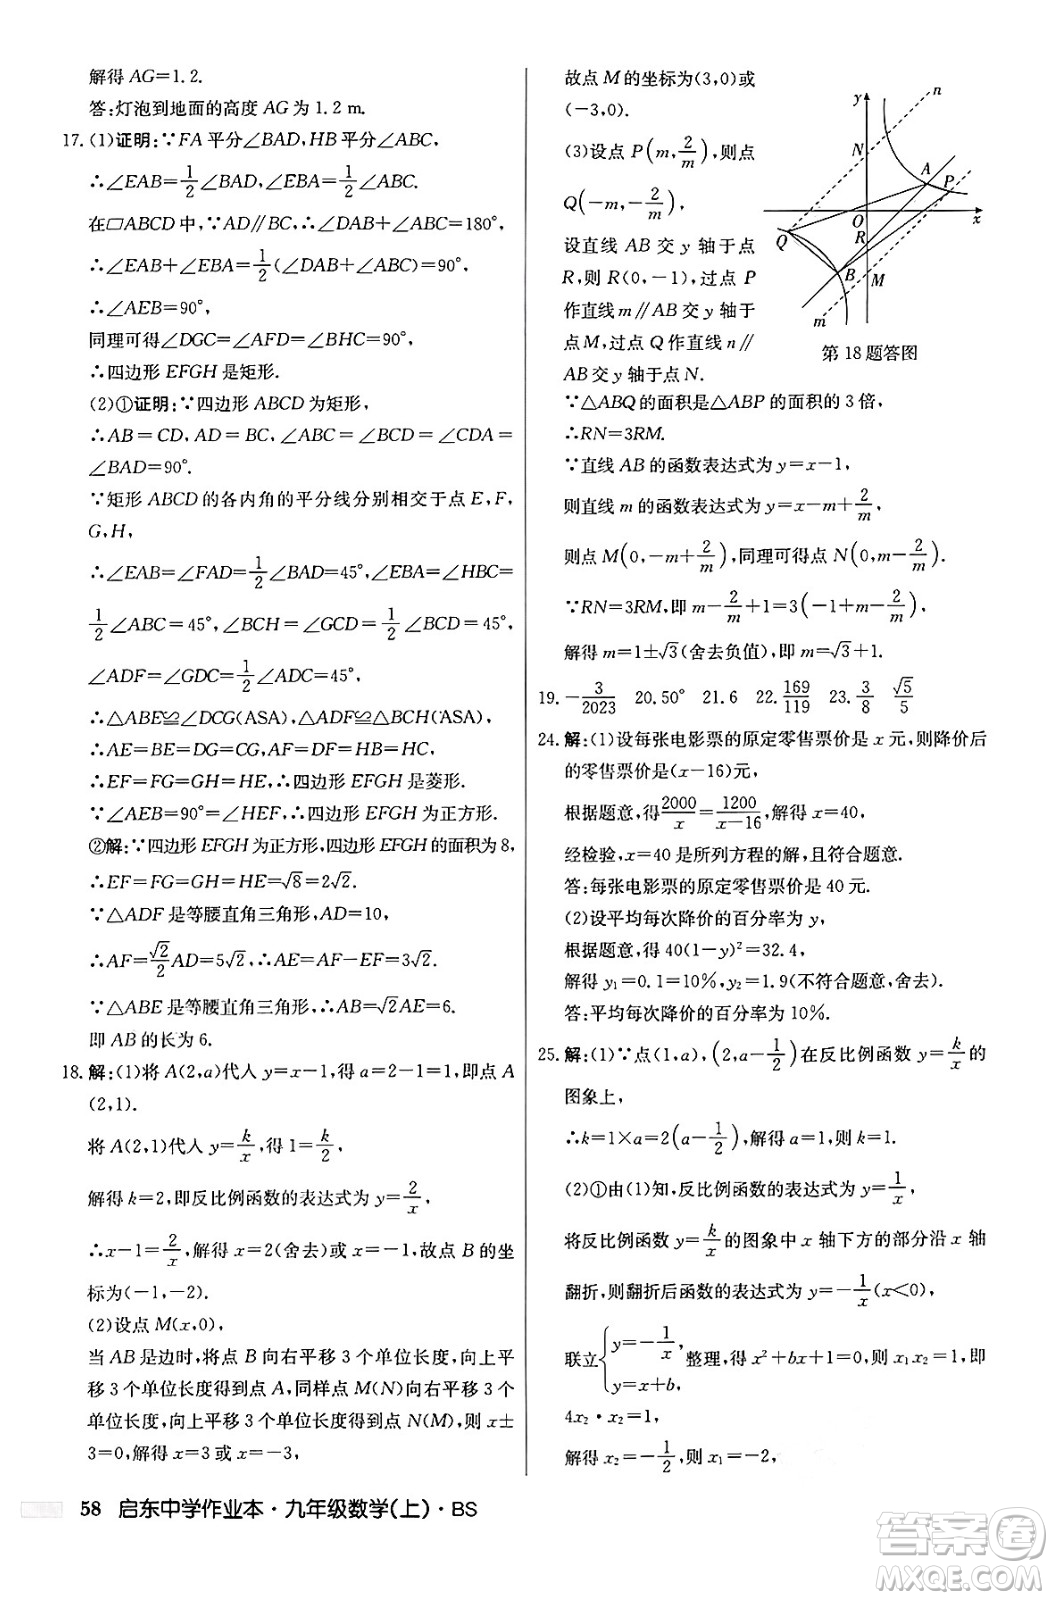 解得 AG=1.2.
答:灯泡到地面的高度 AG 为 1.2 m.
17.(1)证明:∵FA 平分∠BAD,HB 平分∠ABC,
∴∠EAB=1/2∠BAD,∠EBA=1/2∠ABC.
在▱ABCD 中,∵AD∥BC,∴∠DAB+∠ABC=180°,
∴∠EAB+∠EBA=1/2(∠DAB+∠ABC)=90°,
∴∠AEB=90°,
同理可得∠DGC=∠AFD=∠BHC=90°,
∴四边形 EFGH 是矩形.
(2)①证明:∵四边形 ABCD 为矩形,
∴AB=CD,AD=BC,∠ABC=∠BCD=∠CDA=
∠BAD=90°.
∵矩形 ABCD 的各内角的平分线分别相交于点 E,F,
G,H,
∴∠EAB=∠FAD=1/2∠BAD=45°,∠EBA=∠HBC=
1/2∠ABC=45°,∠BCH=∠GCD=1/2∠BCD=45°,
∠ADF=∠GDC=1/2∠ADC=45°,
∴△ABE≌∠DCG(ASA),△ADF≌△BCH(ASA),
∴AE=BE=DG=CG,AF=DF=BH=CH,
∴EF=FG=GH=HE,∴四边形 EFGH 是菱形.
∵∠AEB=90°=∠HEF,∴四边形 EFGH 为正方形.
②解:∵四边形 EFGH 为正方形,四边形 EFGH 的面积为 8,
∴EF=FG=GH=HE=√8=2√2.
∵△ADF 是等腰直角三角形,AD=10,
∴AF=√2/2AD=5√2,∴AE=AF-EF=3√2.
∵△ABE 是等腰直角三角形,∴AB=√2AE=6.
即 AB 的长为 6.
18.解:(1)将 A(2,a)代人 y=x-1,得 a=2-1=1,即点 A
(2,1).
将 A(2,1)代人 y=k/x,得 1=k/2,
解得 k=2,即反比例函数的表达式为 y=2/x,
∴x-1=2/x,解得 x=2(舍去)或 x=-1,故点 B 的坐
标为(-1,-2).
(2)设点 M(x,0),
当 AB 是边时,将点 B 向右平移 3 个单位长度,向上平
移 3 个单位长度得到点 A,同样点 M(N)向右平移 3 个
单位长度,向上平移 3 个单位长度得到点 N(M),则 x±
3=0,解得 x=3 或 x=-3,
故点 M 的坐标为(3,0)或
(-3,0).
(3)设点 P(m,2/m),则点
Q(-m,-2/m),
设直线 AB 交 y 轴于点
R,则 R(0,-1),过点 P
作直线 m∥AB 交 y 轴于
点 M,过点 Q 作直线 n∥
AB 交 y 轴于点 N.
y
n
N
A
P
O
x
Q
R
B
M
m
第 18 题答图
∵△ABQ 的面积是△ABP 的面积的 3 倍,
∴RN=3RM.
∵直线 AB 的函数表达式为 y=x-1,
则直线 m 的函数表达式为 y=x-m+2/m,
则点 M(0,-m+2/m),同理可得点 N(0,m-2/m).
∵RN=3RM,即 m-2/m+1=3(-1+m-2/m),
解得 m=1±√3(舍去负值),即 m=√3+1.
19.-3/2023 20.50° 21.6 22.169/119 23.3/8 √5/5
24.解:(1)设每张电影票的原定零售票价是 x 元,则降价后
的零售票价是(x-16)元,
根据题意,得2000/x=1200/(x-16),解得 x=40,
经检验,x=40 是所列方程的解,且符合题意.
答:每张电影票的原定零售票价是 40 元.
(2)设平均每次降价的百分率为 y,
根据题意,得 40(1-y)²=32.4,
解得 y₁=0.1=10%,y₂=1.9(不符合题意,舍去).
答:平均每次降价的百分率为 10%.
25.解:(1)∵点(1,a),(2,a-1/2)在反比例函数 y=k/x的
图象上,
∴k=1×a=2(a-1/2),解得 a=1,则 k=1.
(2)①由(1)知,反比例函数的表达式为 y=1/x,
将反比例函数 y=k/x的图象中 x 轴下方的部分沿 x 轴
翻折,则翻折后函数的表达式为 y=-1/x(x<0),
联立{y=-1/x, y=x+b,整理,得 x²+bx+1=0,则 x₁x₂=
4x₂·x₂=1,
解得 x₂=-1/2,则 x₁=-2,
58 启东中学作业本·九年级数学(上)·BS
答案圈
MXQE.COM